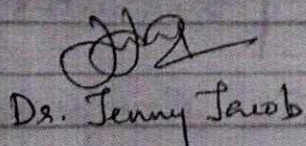 Dr. Jenny Jacob